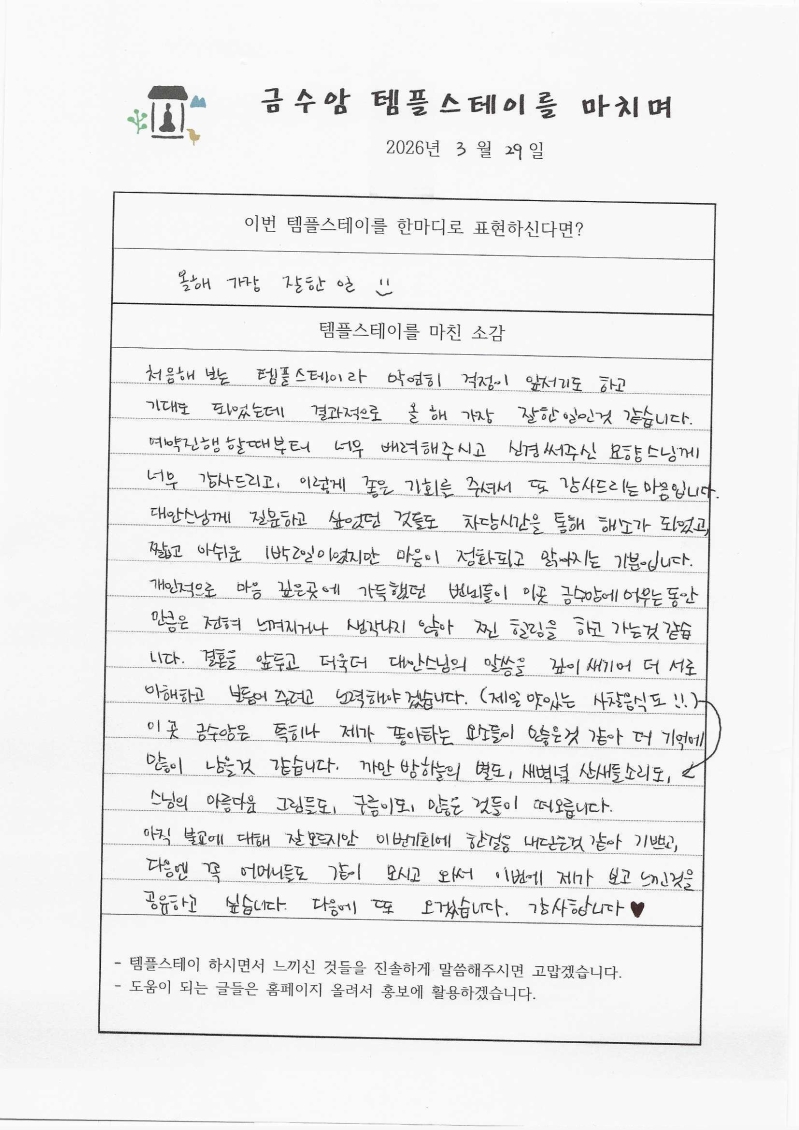 금수암 템플스테이를 마치며
2026년 3월 29일
이번 템플스테이를 한마디로 표현하신다면?
올해 가장 잘한 일 !!
템플스테이를 마친 소감
처음해 보는 템플스테이라 막연히 걱정이 앞서기도 하고
기대도 되었는데 결과적으로 올 해 가장 잘한일인것 같습니다.
예약진행 할때부터 너무 배려해주시고 신경써주신 묘향스님께
너무 감사드리고, 이렇게 좋은 기회를 주셔서 또 감사드리는 마음입니다.
대안스님께 질문하고 싶었던 것들도 차담시간을 통해 해소가 되었고,
짧고 아쉬운 1박2일이었지만 마음이 정화되고 맑아지는 기분입니다.
개인적으로 마음 깊은곳에 가득했던 번뇌들이 이곳 금수암에 머무는동안
만큼은 전혀 느껴지거나 생각나지 않아 찐 힐링을 하고 가는것 같습
니다. 결혼을 앞두고 더욱더 대안스님의 말씀을 깊이 새기어 더 서로
이해하고 보듬어 주려고 노력해야 겠습니다. (제일 맛있는 사찰음식도 !!)
이 곳 금수암은 특히나 제가 좋아하는 요소들이 많은것 같아 더 기억에
많이 남을것 같습니다. 까만 밤하늘의 별도, 새벽녘 산새들소리도,
스님의 아름다운 그림들도, 구름이도, 많은 것들이 떠오릅니다.
아직 불교에 대해 잘모르지만 이번기회에 한걸음 내딛은것 같아 기쁘고,
다음엔 꼭 어머니들도 같이 모시고 와서 이번에 제가 보고 느낀것을
공유하고 싶습니다. 다음에 또 오겠습니다. 감사합니다 ♥
- 템플스테이 하시면서 느끼신 것들을 진솔하게 말씀해주시면 고맙겠습니다.
- 도움이 되는 글들은 홈페이지 올려서 홍보에 활용하겠습니다.